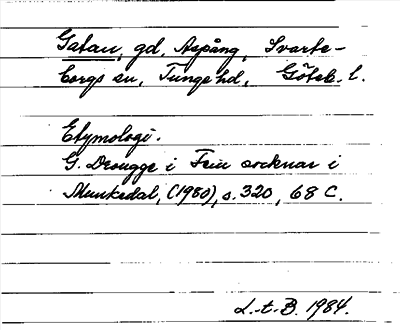 Gatan, gd, Aspång, Svarte-
borgs sn, Tunge hd, Göteb. l.
Etymologi.
G. Drougge i Fem socknar i
Munkedal, (1980), s. 320, 68 C.
L.-t. B. 1984.